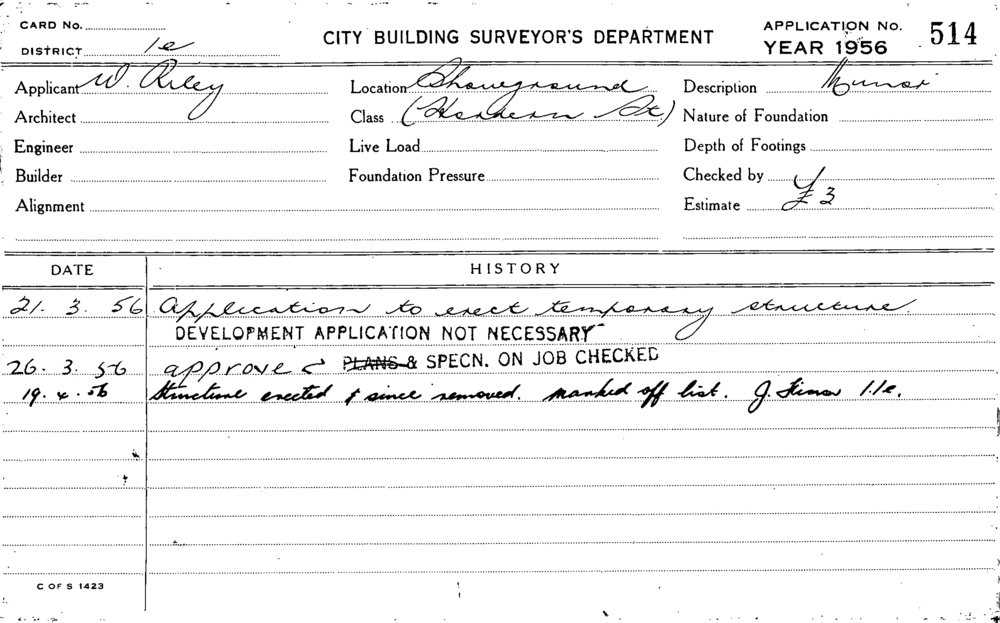 CARD No.
DISTRICT 1e
CITY BUILDING SURVEYOR'S DEPARTMENT
APPLICATION No. 514
YEAR 1956
Applicant W. Riley
Location Showground
Description
Architect
Class
Nature of Foundation
Engineer
Live Load
Depth of Footings
Builder
Foundation Pressure
Checked by
Alignment
Estimate £3
DATE HISTORY
21. 3. 56 Application to erect temporary structure.
DEVELOPMENT APPLICATION NOT NECESSARY
26. 3. 56 approved PLANS & SPECN. ON JOB CHECKED
19. 4. 56 Structure erected & since removed. marked off list. J. 1.e.
C OF S 1423